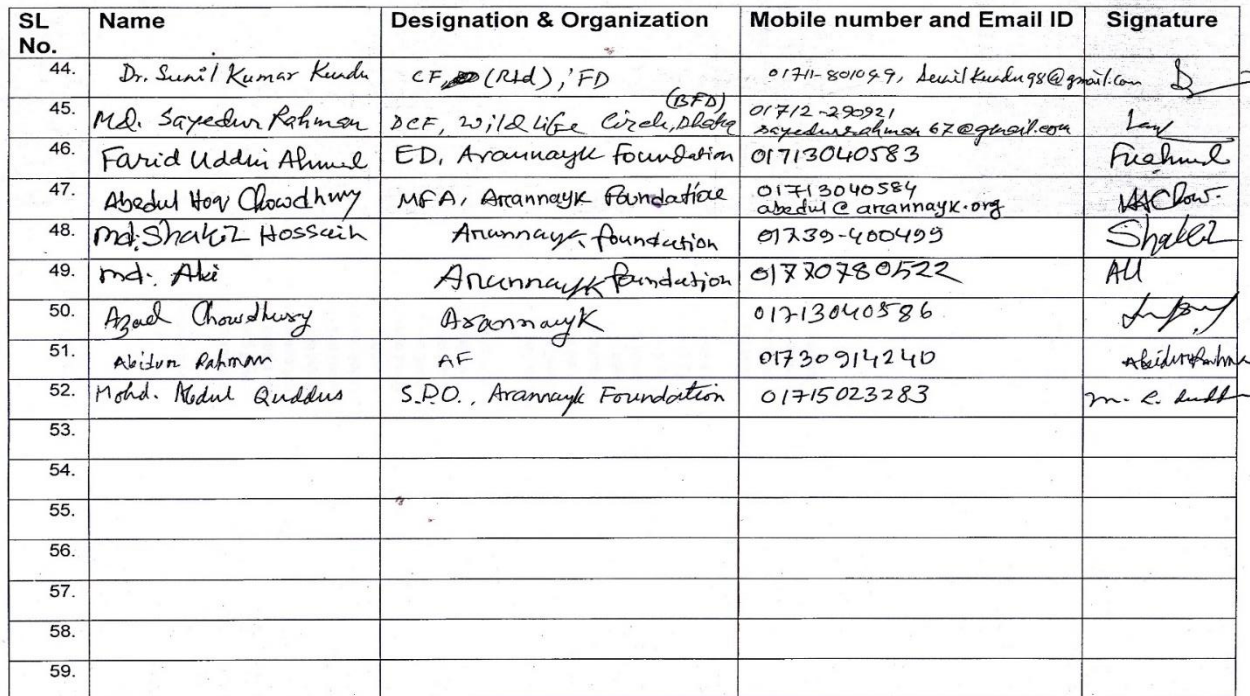 SL No. Name Designation & Organization Mobile number and Email ID Signature
44. Dr. Sunil Kumar Kundu CF, (Rtd), FD 01711-801049, Sunilkundu98@gmail.com
45. Md. Sayedur Rahman DCF, Wild Life Circle, Dhaka (BFD) 01712-290921 sayedurrahman67@gmail.com
46. Farid Uddin Ahmed ED, Arannayk Foundation 01713040583 Fuahmed
47. Abedul Hoq Chowdhury MFA, Arannayk Foundation 01713040584 abedul@arannayk.org
48. Md. Shakil Hossain Arannayk foundation 01739-400499 Shakil
49. md. Ali Arannayk foundation 01770780522 Ali
50. Azad Chowdhury Arannayk 01713040586
51. Abidur Rahman AF 01730914240 Abidur Rahman
52. Mohd. Abdul Quddus S.P.O., Arannayk Foundation 01715023283
53.
54.
55.
56.
57.
58.
59.